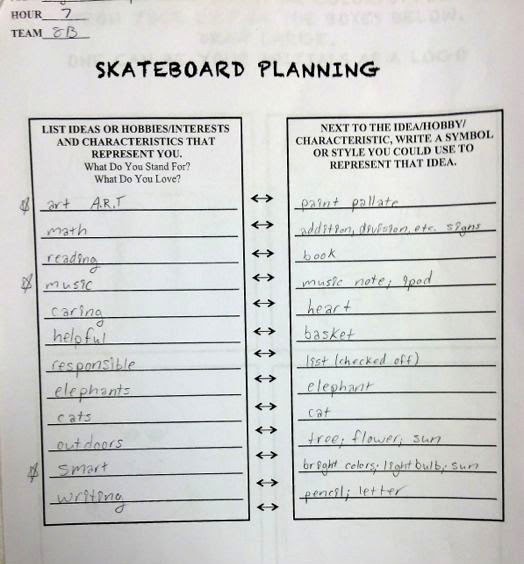 HOUR 7
TEAM 8B
SKATEBOARD PLANNING
LIST IDEAS OR HOBBIES/INTERESTS
AND CHARACTERISTICS THAT
REPRESENT YOU.
What Do You Stand For?
What Do You Love?
NEXT TO THE IDEA/HOBBY/
CHARACTERISTIC, WRITE A SYMBOL
OR STYLE YOU COULD USE TO
REPRESENT THAT IDEA.
art A.R.T ↔ paint pallate
math ↔ addition, division, etc. signs
reading ↔ book
music ↔ music note; ipod
caring ↔ heart
helpful ↔ basket
responsible ↔ list (checked off)
elephants ↔ elephant
cats ↔ cat
outdoors ↔ tree; flower; sun
smart ↔ bright colors; lightbulb; sun
writing ↔ pencil; letter